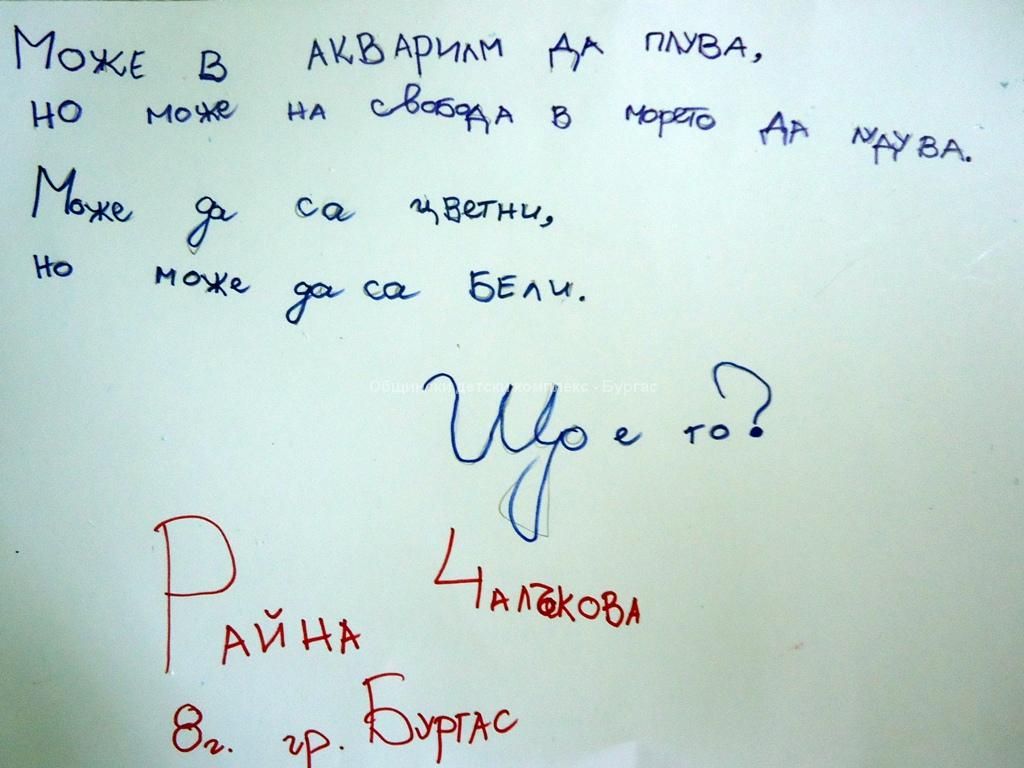 Може в АКВАРИЛМ ДА ПЛУВА,
НО може НА свобода в морето ДА ПЛУВА.
Може да са цветни,
но може да са БЕЛИ.
Общински детски комплекс - Бургас
Що е то?
РАЙНА ЧАЛЪКОВА
8г. гр. БУРГАС